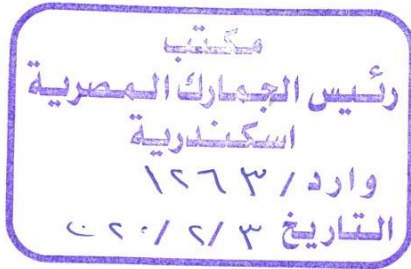 مكتب
رئيس الجمارك المصرية
اسكندرية
وارد / ١٢٦٣
التاريخ ٣ / ٢ /